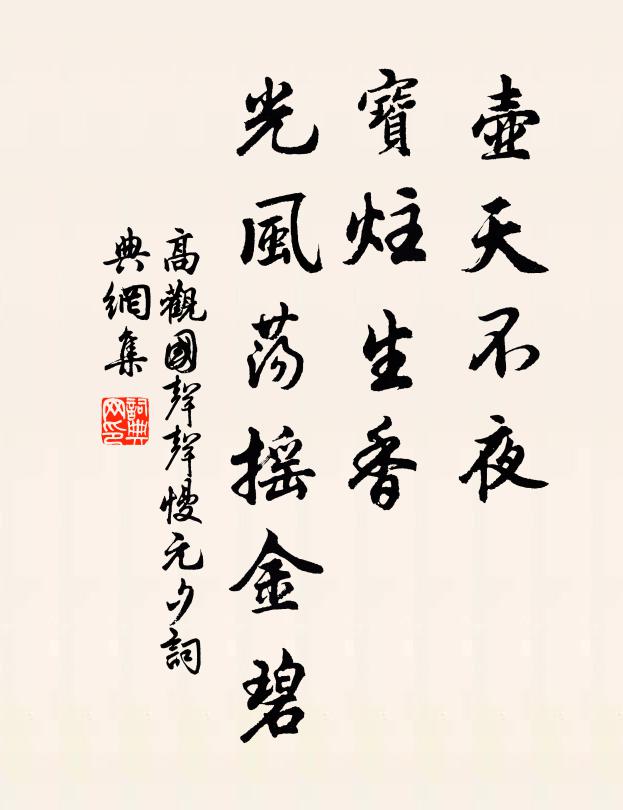 壺天不夜
寶炷生香
光風蕩搖金碧
高觀國聲聲慢元夕詞
典網集
詞典網印